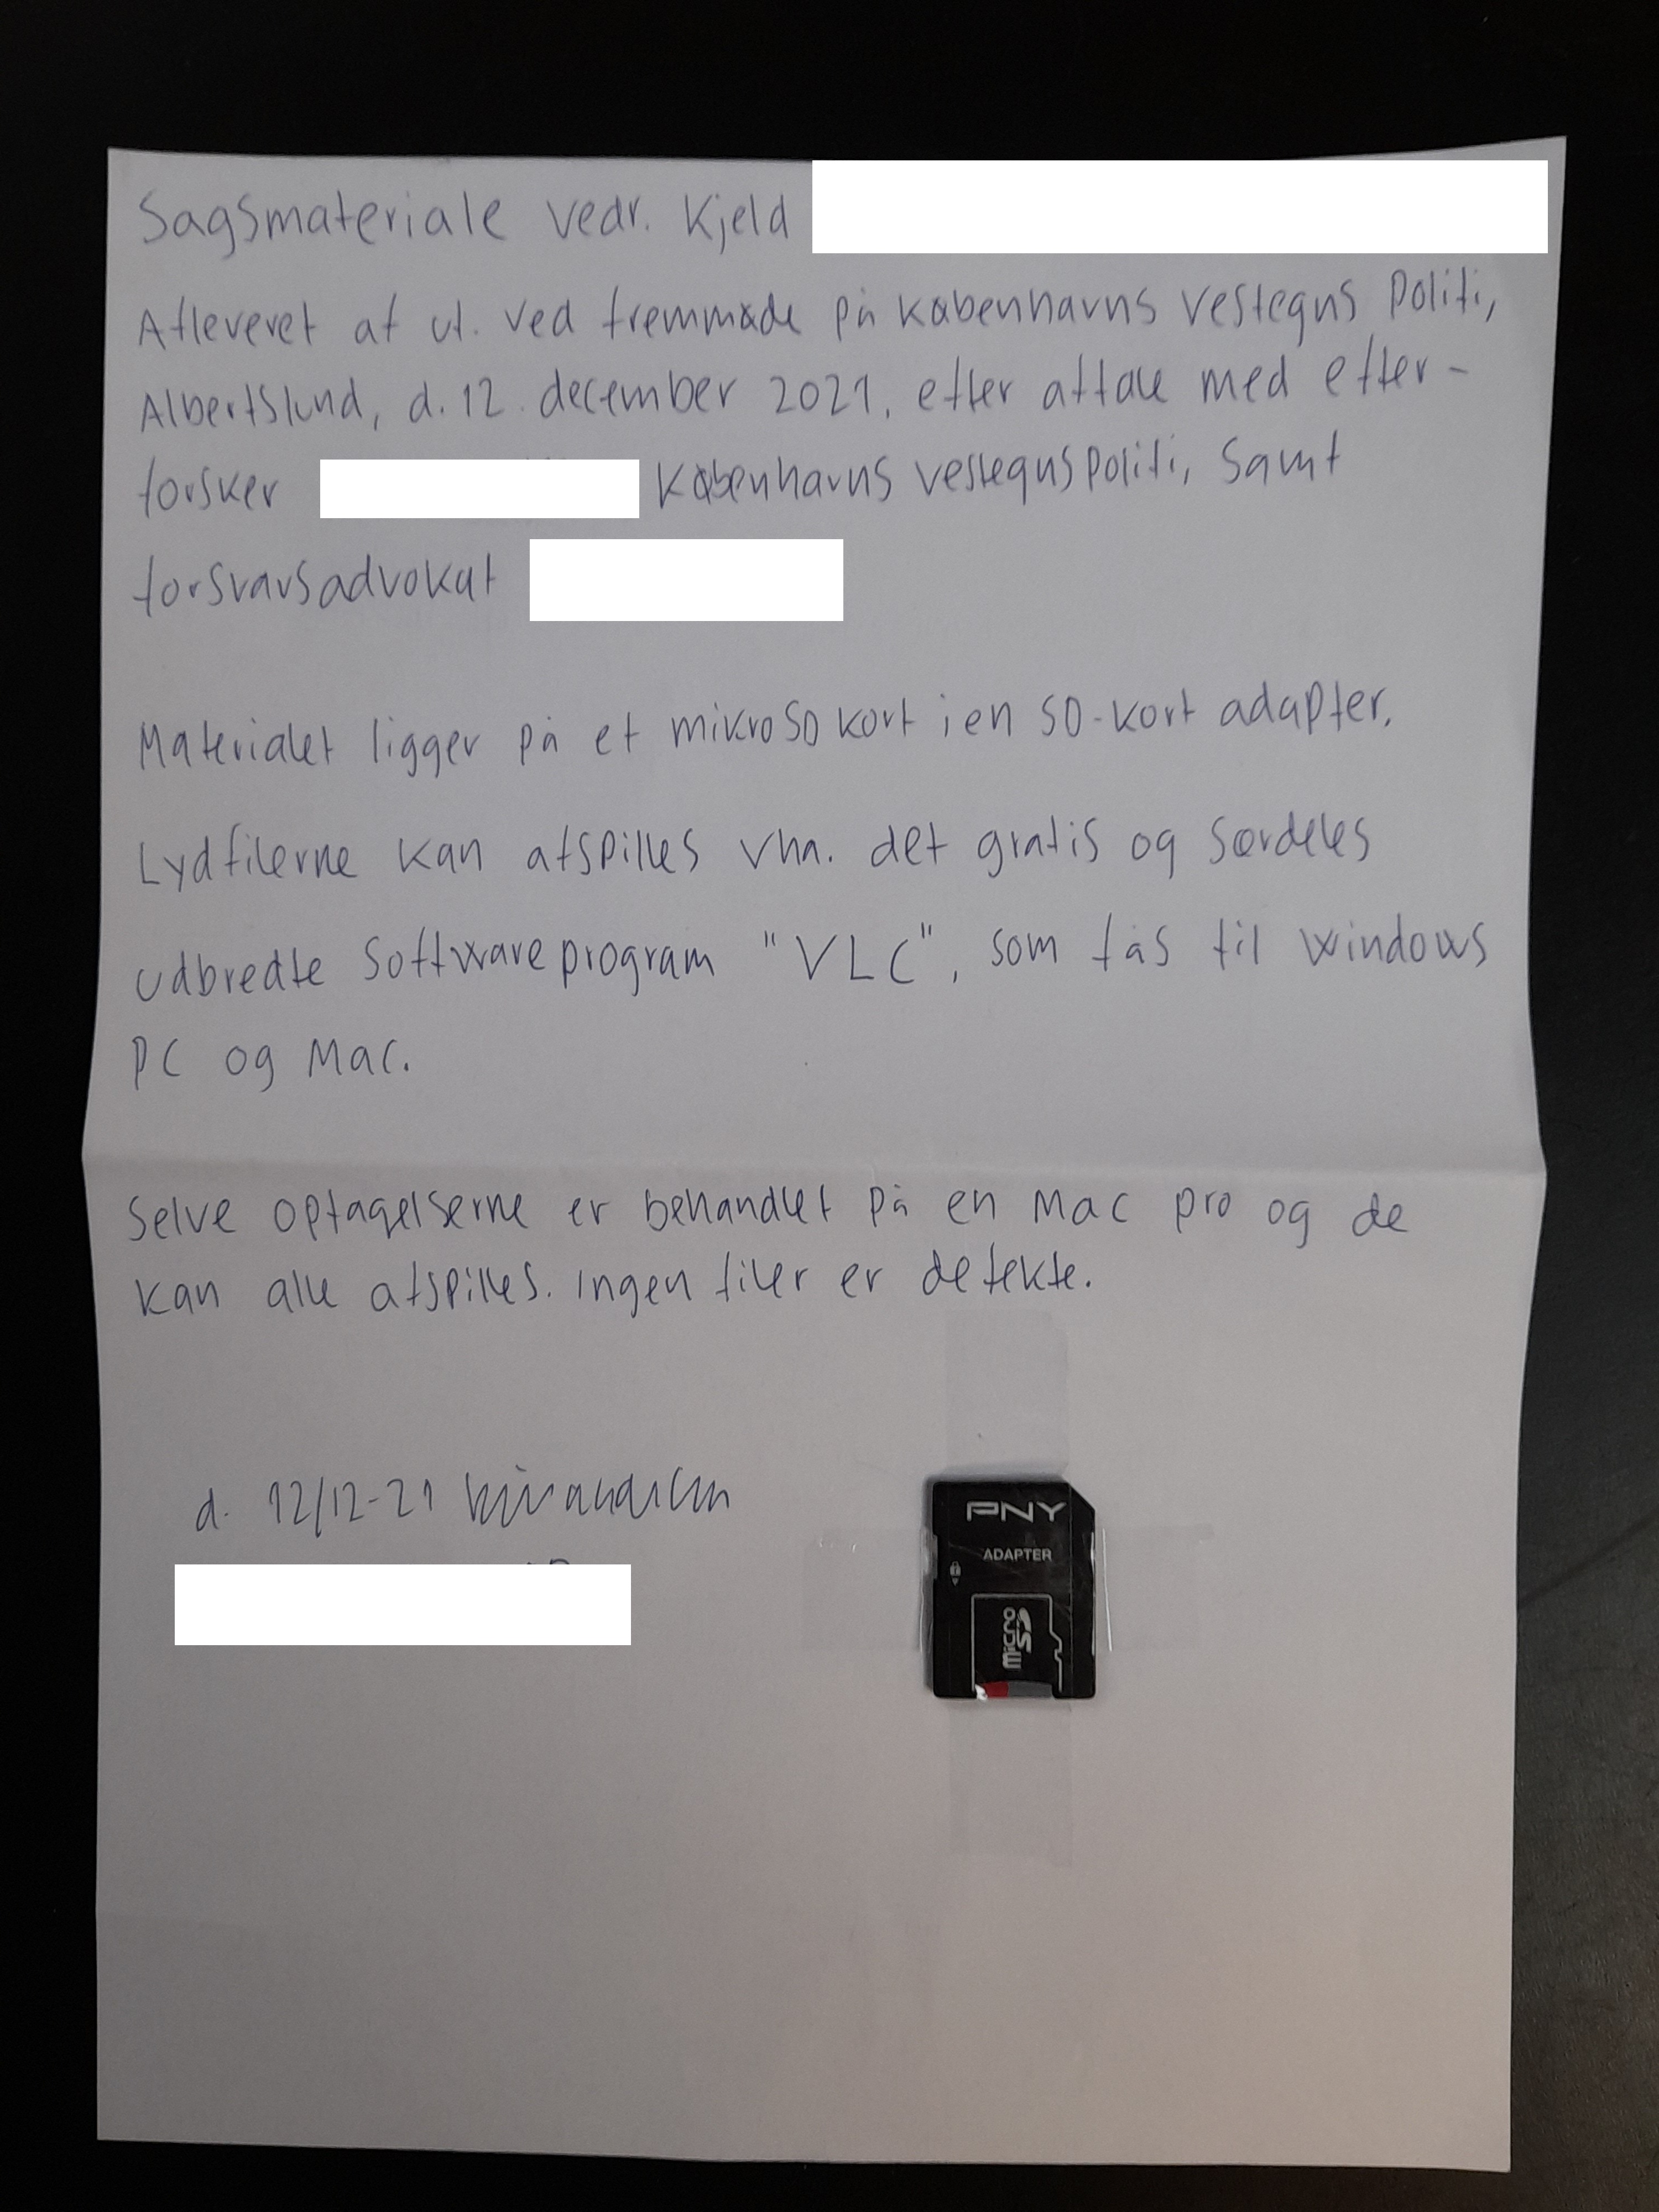 Sagsmateriale vedr. Kjeld
Afleveret af ut. ved fremmøde på Københavns Vestegns Politi,
Albertslund, d. 12. december 2021, efter aftale med efter-
forsker Københavns Vestegns Politi, samt
forsvarsadvokat
Materialet ligger på et mikroSD kort i en SD-kort adapter.
Lydfilerne kan afspilles vha. det gratis og særdeles
udbredte softwareprogram "VLC", som fås til Windows
PC og Mac.
Selve optagelserne er behandlet på en Mac Pro og de
kan alle afspilles. Ingen filer er defekte.
d. 12/12-21
PNY
ADAPTER
micro SD